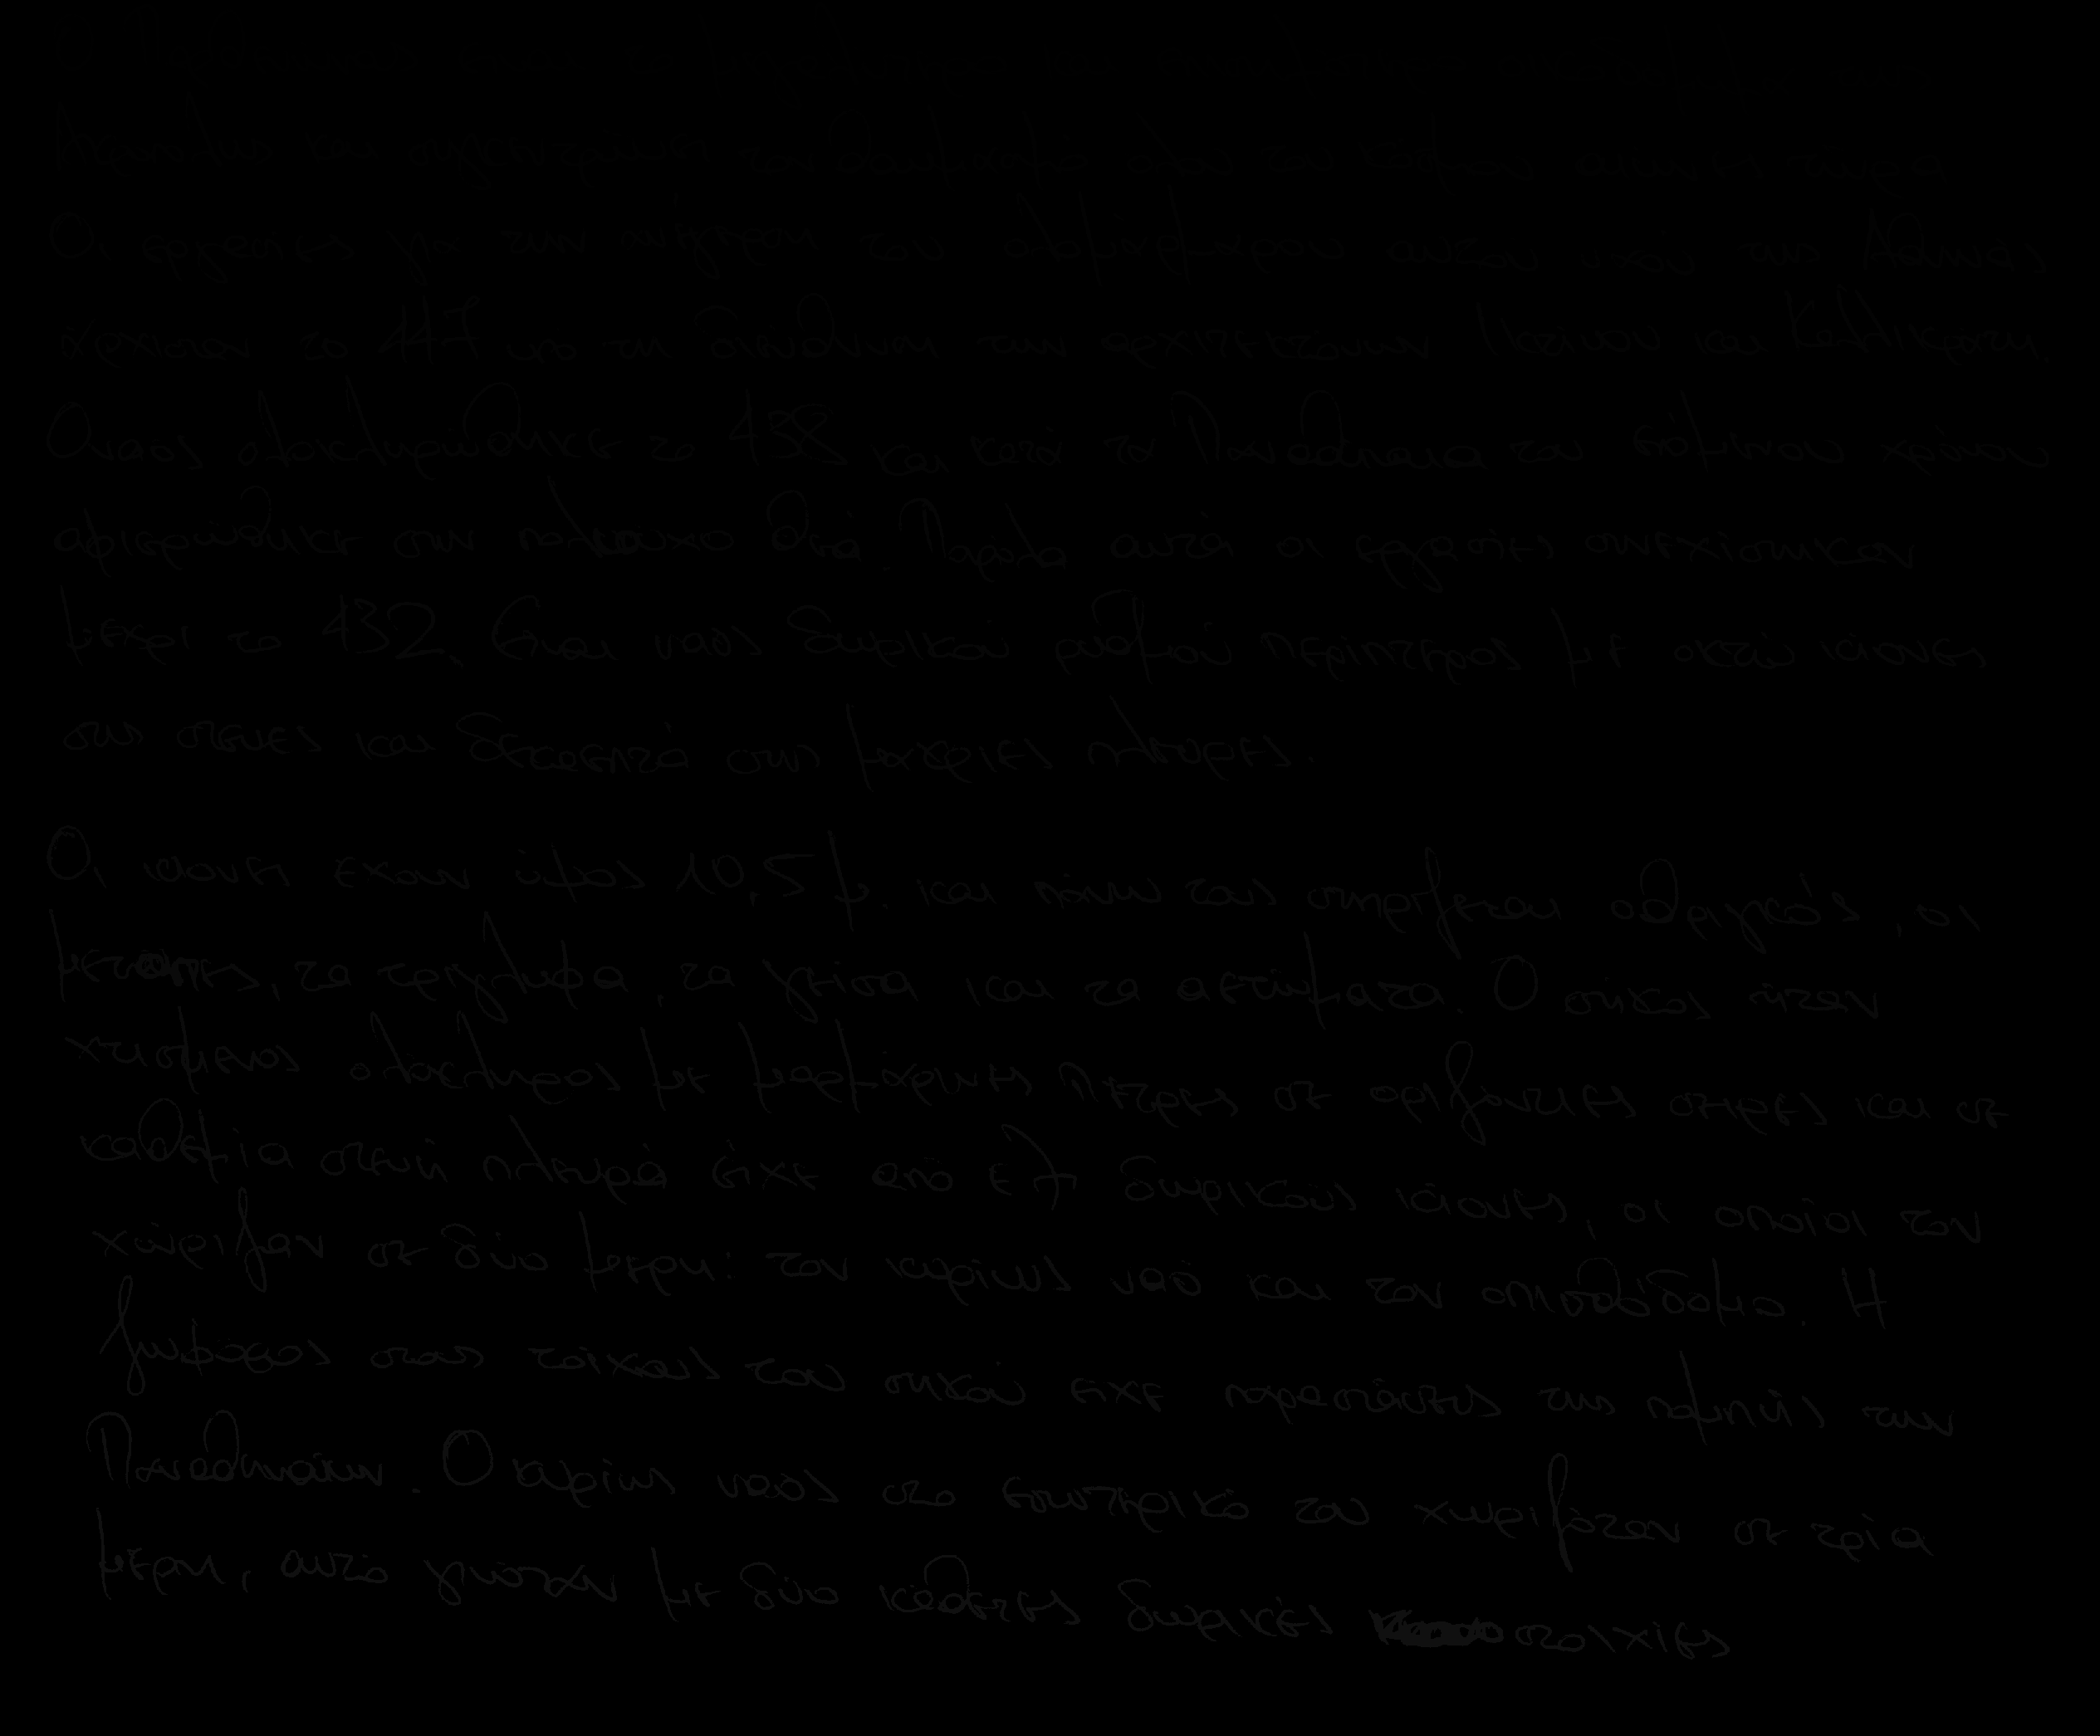 Ακροπόλεως και συγκεντρώνει τον θαυμασμό όλου του κόσμου αιώνες τώρα
Οι εργασίες για την ανέγερση του ολομάρμαρου αυτού ναού της Αθηνάς
άρχισαν το 447 υπό τη διεύθυνση των αρχιτεκτόνων Ικτίνου και Καλλικράτη.
Ο ναός ολοκληρώθηκε το 438 και κατά τα Παναθήναια του επόμενου χρόνου
αφιερώθηκε στην πολιούχο θεά. Παρόλα αυτά οι εργασίες συνεχίστηκαν
μέχρι το 432. Είναι ναός δωρικού ρυθμού περίπτερος με οκτώ κίονες
στις στενές και δεκαεπτά στις μακριές πλευρές.
Οι κίονες έχουν ύψος 10,5 μ. και πάνω τους στηρίζεται ο θριγκός, οι
μετόπες, τα τρίγλυφα, τα γείσα και τα αετώματα. Ο σηκός ήταν
χτισμένος ολόκληρος με μαρμάρινες πέτρες σε οριζόντιες σειρές και σε
καθεμία στενή πλευρά είχε από έξι δωρικούς κίονες, οι οποίοι τον
χώριζαν σε δύο μέρη: τον κυρίως ναό και τον οπισθόδομο. Η
ζωφόρος στους τοίχους του σηκού είχε παραστάσεις της πομπής των
Παναθηναίων. Ο κυρίως ναός στο εσωτερικό του χωριζόταν σε τρία
μέρη, αυτό γινόταν με δύο κάθετες δωρικές στοιχίες